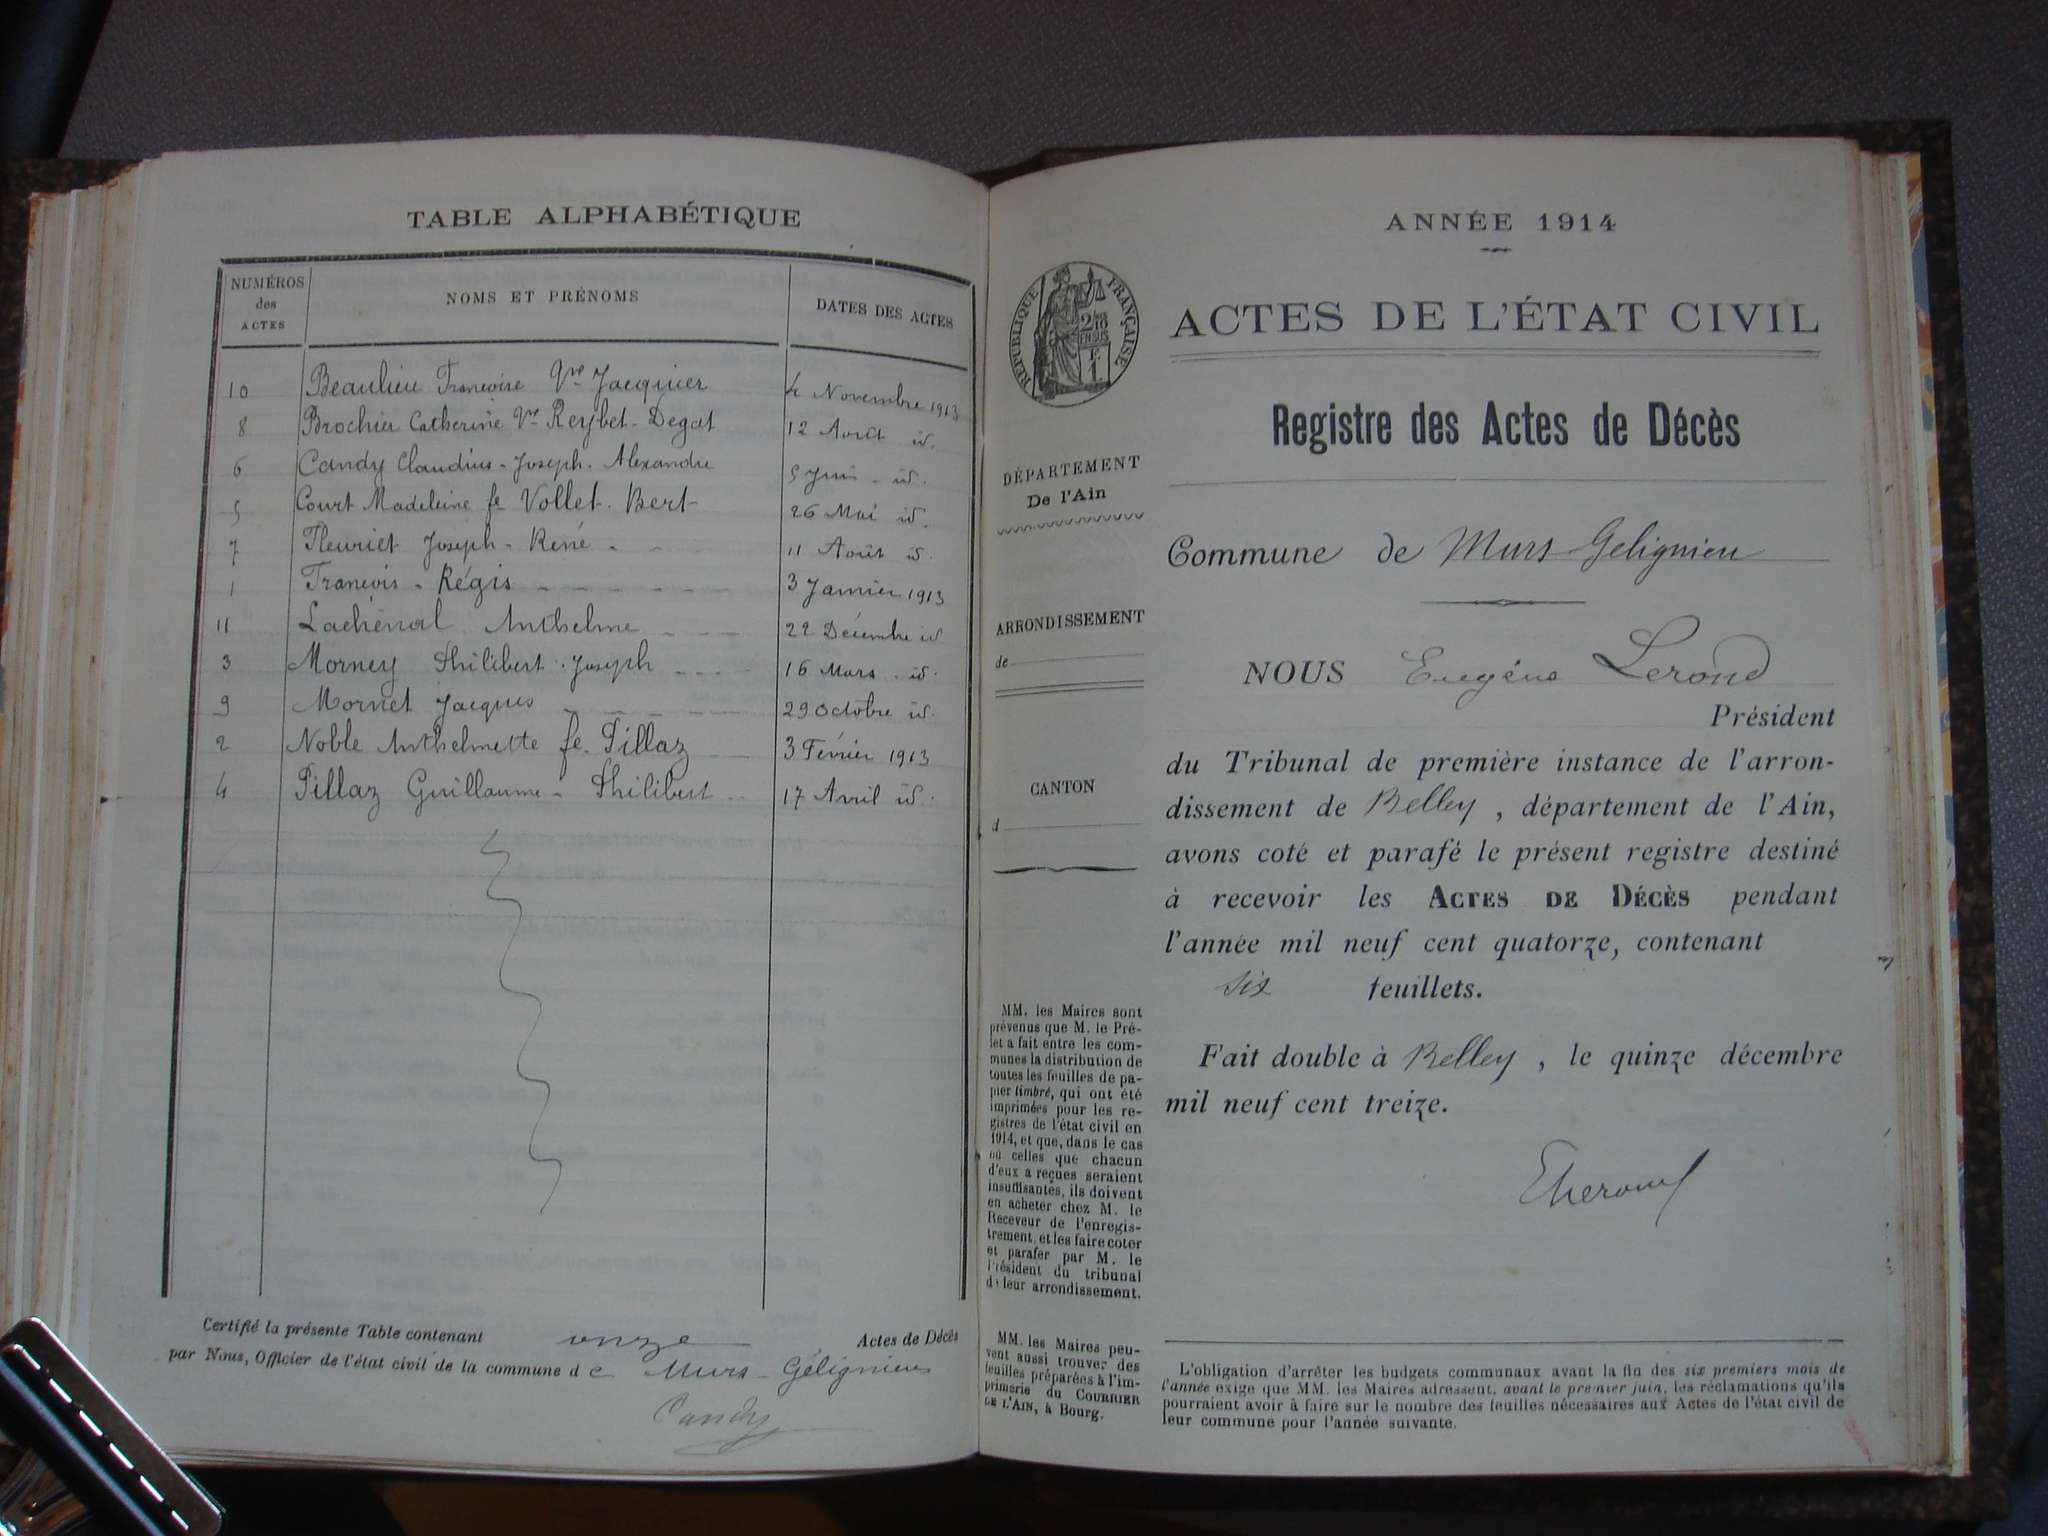 TABLE ALPHABÉTIQUE
NUMÉROS des ACTES NOMS ET PRÉNOMS DATES DES ACTES
10 Beaulieu Françoise Vve Jacquier 4 Novembre 1913
8 Brochier Catherine Vve Reybet-Degat 12 Août id.
6 Candy Claudius-Joseph-Alexandre 5 Juin id.
5 Court Madeleine fe Vollet-Bert 26 Mai id.
7 Fleuriet Joseph-René 11 Août id.
1 François-Régis 3 Janvier 1913
11 Lachenal Anthelme 22 Décembre id
3 Morney Philibert-Joseph 16 Mars id.
9 Mornet Jacques 29 Octobre id.
2 Noble Anthelmette fe Pillaz 3 Février 1913
4 Pillaz Guillaume-Philibert 17 Avril id.
Certifié la présente Table contenant onze Actes de Décès
par Nous, Officier de l'état civil de la commune de Murs-Gélignieu
Candy
ANNÉE 1914
RÉPUBLIQUE FRANÇAISE
2/10 EN SUS
ACTES DE L'ÉTAT CIVIL
Registre des Actes de Décès
DÉPARTEMENT
De l'Ain
ARRONDISSEMENT
de
CANTON
d
Commune de Murs Gelignieu
NOUS Eugène Lerond
Président
du Tribunal de première instance de l'arron-
dissement de Belley, département de l'Ain,
avons coté et parafé le présent registre destiné
à recevoir les ACTES DE DÉCÈS pendant
l'année mil neuf cent quatorze, contenant
six feuillets.
Fait double à Belley, le quinze décembre
mil neuf cent treize.
MM. les Maires sont
prévenus que M. le Pré-
fet a fait entre les com-
munes la distribution de
toutes les feuilles de pa-
pier timbré, qui ont été
imprimées pour les re-
gistres de l'état civil en
1914, et que, dans le cas
où celles que chacun
d'eux a reçues seraient
insuffisantes, ils doivent
en acheter chez M. le
Receveur de l'enregis-
trement, et les faire coter
et parafer par M. le
Président du tribunal
de leur arrondissement.
MM. les Maires peu-
vent aussi trouver des
feuilles préparées à l'im-
primerie du COURRIER
DE L'AIN, à Bourg.
L'obligation d'arrêter les budgets communaux avant la fin des six premiers mois de
l'année exige que MM. les Maires adressent, avant le premier juin, les réclamations qu'ils
pourraient avoir à faire sur le nombre des feuilles nécessaires aux Actes de l'état civil de
leur commune pour l'année suivante.